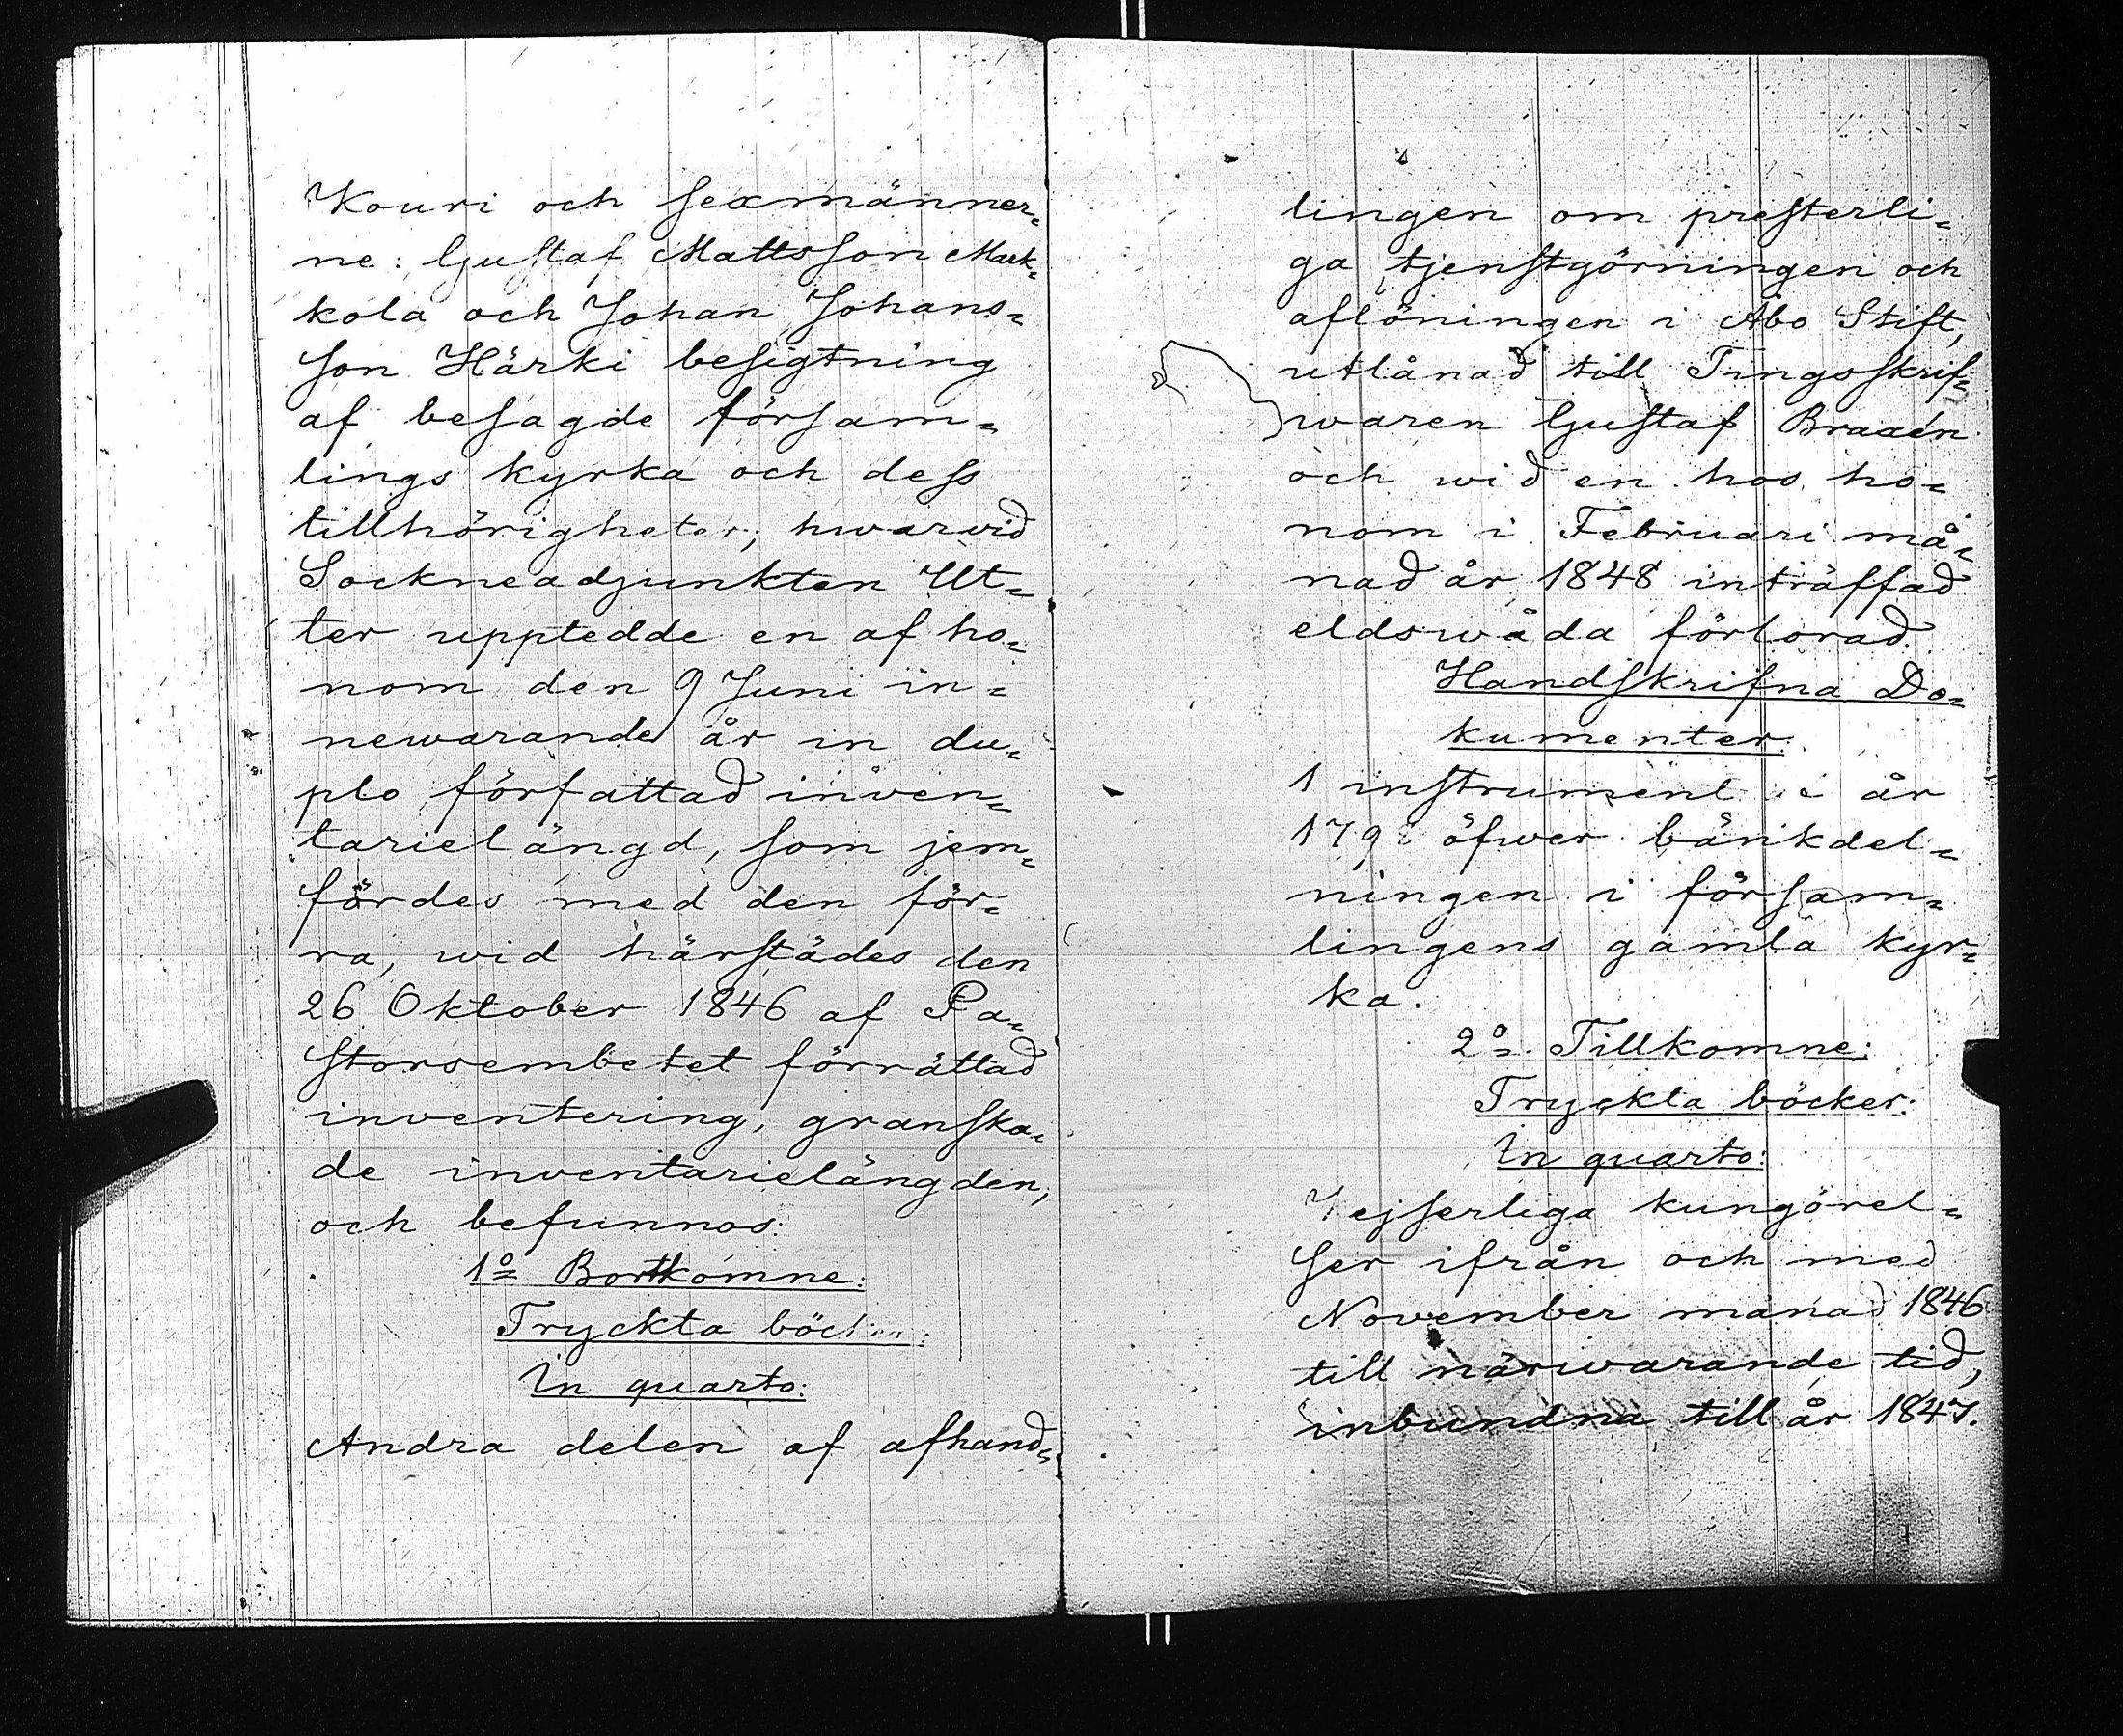 Kouri och sexmänner=
ne: Gustaf Mattsson Mark=
kola och Johan Johans=
son Härki besigtning
af besagde försam=
lings kyrka och dess
tillhörigheter, hwarvid
Sockneadjunkten Ut=
ter upptedde en af ho=
nom den 9 Juni in=
newarande år in du=
plo författad inven=
tarielängd, som jem=
fördes med den för=
ra, wid härstädes den
26 Oktober 1846 af Pa=
storsembetet förrättad
inventering, granska=
de inventarielängden,
och befunnos:
1o Bortkomne:
Tryckta böcker:
In quarto:
Andra delen af afhand=
lingen om presterli=
ga tjenstgörningen och
aflöningen i Åbo Stift,
utlånad till Tingsskrif=
waren Gustaf Braxén
och wid en hos ho=
nom i Februari må=
nad år 1848 inträffad
eldswåda förlorad.
Handskrifna Do=
kumenter:
1 instrument år
179 öfwer bänkdel=
ningen i försam=
lingens gamla kyr=
ka.
2o Tillkomne:
Tryckta böcker:
In quarto:
Kejserliga kungörel=
ser ifrån och med
November månad 1846
till närwarande tid,
inbundna till år 1847.